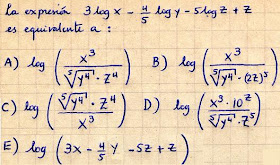 La expresión 3 log x - 4/5 log y - 5 log z + z
es equivalente a :
A) log ( x³ / ⁵√y⁴ · z⁴ ) B) log ( x³ / ⁵√y⁴ · (2z)⁵ )
C) log ( ⁵√y⁴ · z⁴ / x³ ) D) log ( x³ · 10ᶻ / ⁵√y⁴ · z⁵ )
E) log ( 3x - 4/5 y - 5z + z )